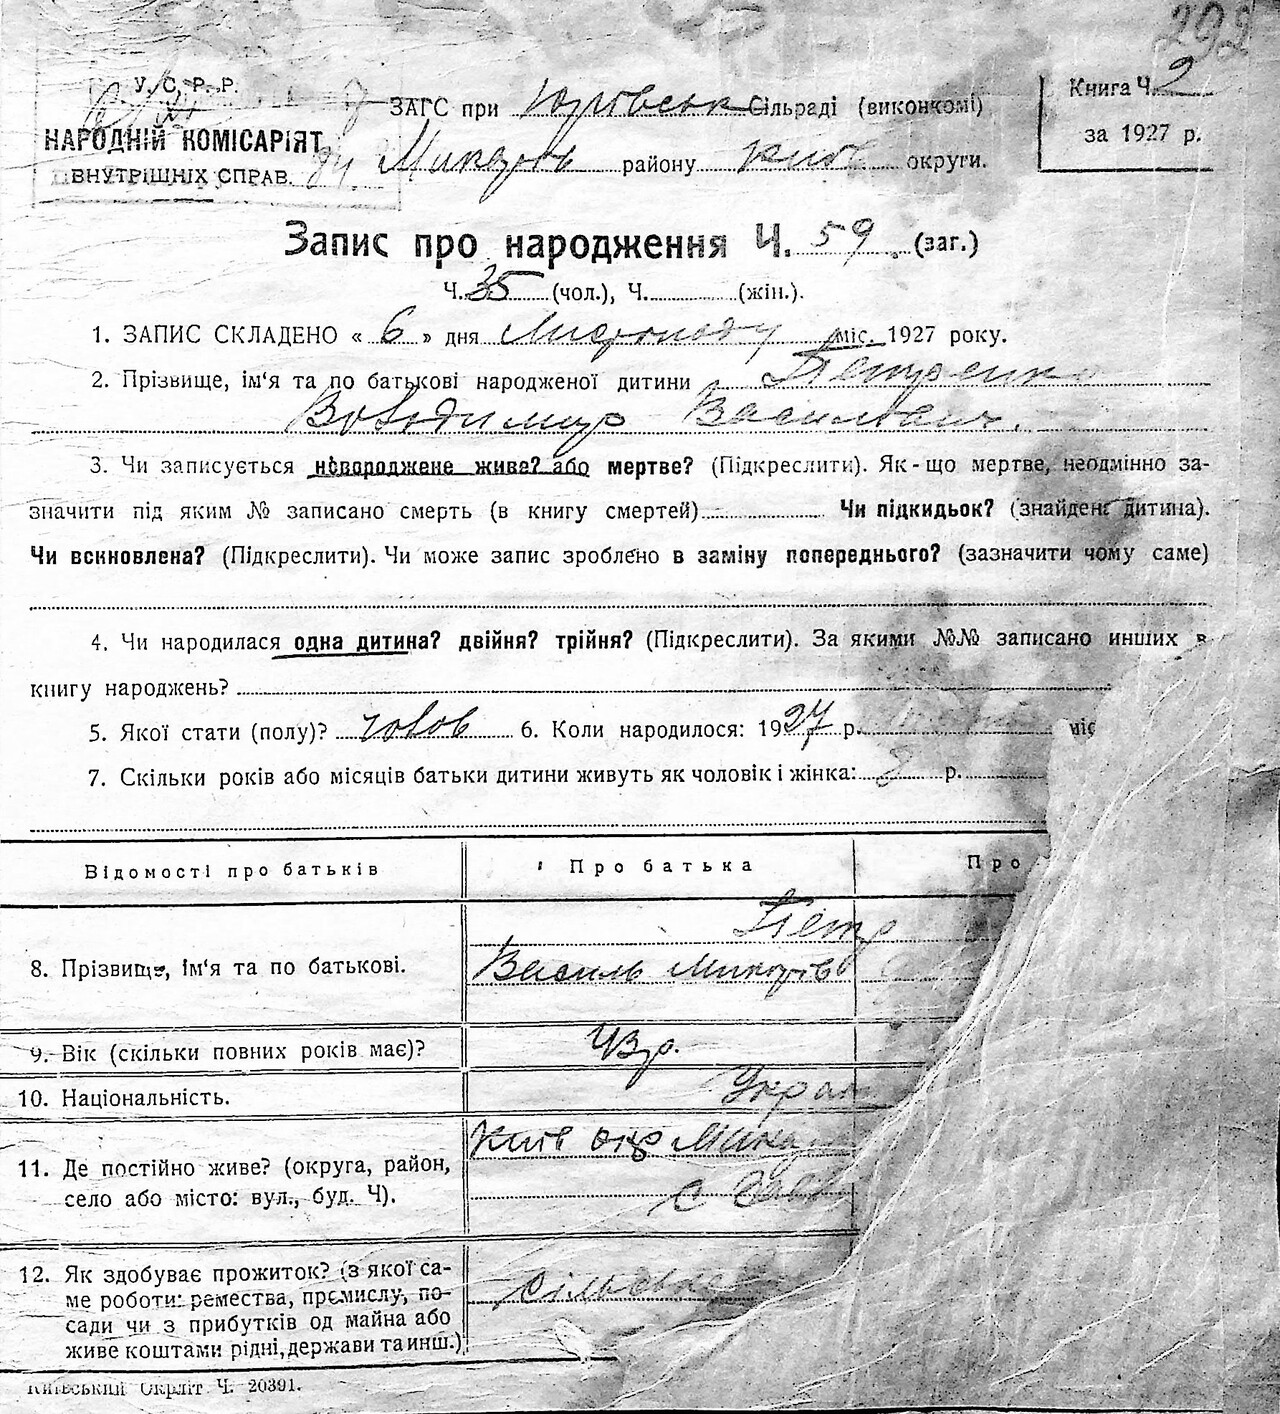 292
У. С. Р. Р.
НАРОДНІЙ КОМІСАРІЯТ
ВНУТРІШНІХ СПРАВ.
ЗАГС при Юровськ Сільраді (виконкомі)
Макарів району Київ округи.
Книга Ч. 2
за 1927 р.
Запис про народження Ч. 59 (заг.)
Ч. 35 (чол.), Ч. (жін.).
1. ЗАПИС СКЛАДЕНО « 6 » дня Листопаду міс. 1927 року.
2. Прізвище, ім‘я та по батькові народженої дитини Петренко
Володимир Василович.
3. Чи записується новороджене живе? або мертве? (Підкреслити). Як-що мертве, неодмінно за-
значити під яким № записано смерть (в книгу смертей) Чи підкидьок? (знайдена дитина).
Чи всиновлена? (Підкреслити). Чи може запис зроблено в заміну попереднього? (зазначити чому саме)
4. Чи народилася одна дитина? двійня? трійня? (Підкреслити). За якими №№ записано инших в
книгу народжень?
5. Якої стати (полу)? чолов 6. Коли народилося: 1927 р. міс
7. Скільки років або місяців батьки дитини живуть як чоловік і жінка: р.
Відомості про батьків Про батька Про
Петр
8. Прізвище, ім‘я та по батькові. Василь
9. Вік (скільки повних років має)? 43 р.
10. Національність. Украї
Київ окр Мака
11. Де постійно живе? (округа, район,
село або місто: вул., буд. Ч). с
12. Як здобуває прожиток? (з якої са-
ме роботи: ремества, премислу, по- Сільськ
сади чи з прибутків од майна або
живе коштами рідні, держави та инш.)
Київський Окрліт Ч. 20391.